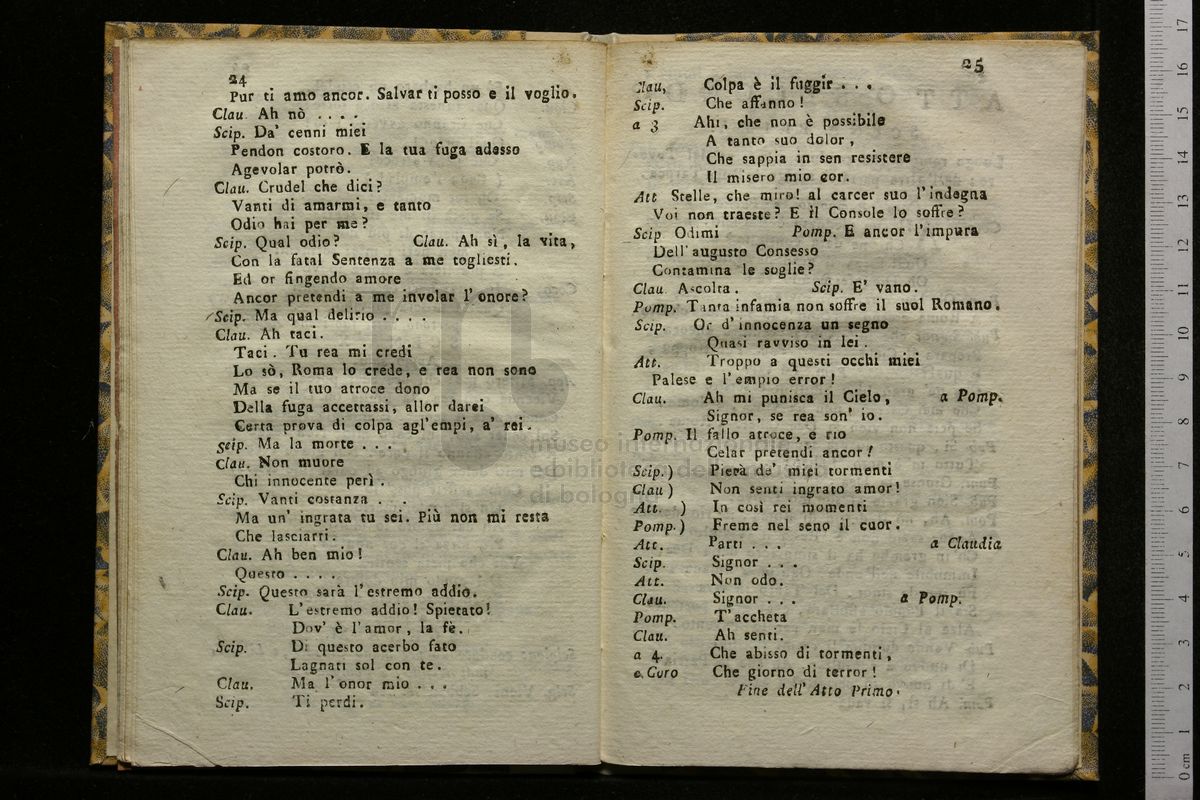 24
Pur ti amo ancor. Salvar ti posso e il voglio.
Clau. Ah nò . . . .
Scip. Da' cenni miei
Pendon costoro. E la tua fuga adesso
Agevolar potrò.
Clau. Crudel che dici?
Vanti di amarmi, e tanto
Odio hai per me?
Scip. Qual odio? Clau. Ah sì, la vita,
Con la fatal Sentenza a me togliesti.
Ed or fingendo amore
Ancor pretendi a me involar l'onore?
Scip. Ma qual delirio . . . .
Clau. Ah taci.
Taci. Tu rea mi credi
Lo sò, Roma lo crede, e rea non sono
Ma se il tuo atroce dono
Della fuga accettassi, allor darei
Certa prova di colpa agl'empi, a' rei.
Scip. Ma la morte . . .
Clau. Non muore
Chi innocente perì.
Scip. Vanti costanza . . .
Ma un' ingrata tu sei. Più non mi resta
Che lasciarti.
Clau. Ah ben mio!
Questo . . . .
Scip. Questo sarà l'estremo addio.
Clau. L'estremo addio! Spietato!
Dov' è l'amor, la fè.
Scip. Di questo acerbo fato
Lagnati sol con te.
Clau. Ma l'onor mio . . .
Scip. Ti perdi.
25
Clau, Colpa è il fuggir . . .
Scip. Che affanno!
a 3 Ahi, che non è possibile
A tanto suo dolor,
Che sappia in sen resistere
Il misero mio cor.
Att Stelle, che miro! al carcer suo l'indegna
Voi non traeste? E il Console lo soffre?
Scip Odimi Pomp. E ancor l'impura
Dell'augusto Consesso
Contamina le soglie?
Clau. Ascolta. Scip. E' vano.
Pomp. Tanta infamia non soffre il suol Romano.
Scip. Or d'innocenza un segno
Quasi ravviso in lei.
Att. Troppo a questi occhi miei
Palese e l'empio error!
Clau. Ah mi punisca il Cielo, a Pomp.
Signor, se rea son' io.
Pomp. Il fallo atroce, e rio
Celar pretendi ancor!
Scip.) Pietà de' miei tormenti
Clau) Non senti ingrato amor!
Att. ) In così rei momenti
Pomp.) Freme nel seno il cuor.
Att. Parti . . . a Claudia
Scip. Signor . . .
Att. Non odo.
Clau. Signor . . . a Pomp.
Pomp. T'accheta
Clau. Ah senti.
a 4. Che abisso di tormenti,
e Coro Che giorno di terror!
Fine dell'Atto Primo.
museo internazionale
e biblioteca della
di bologna